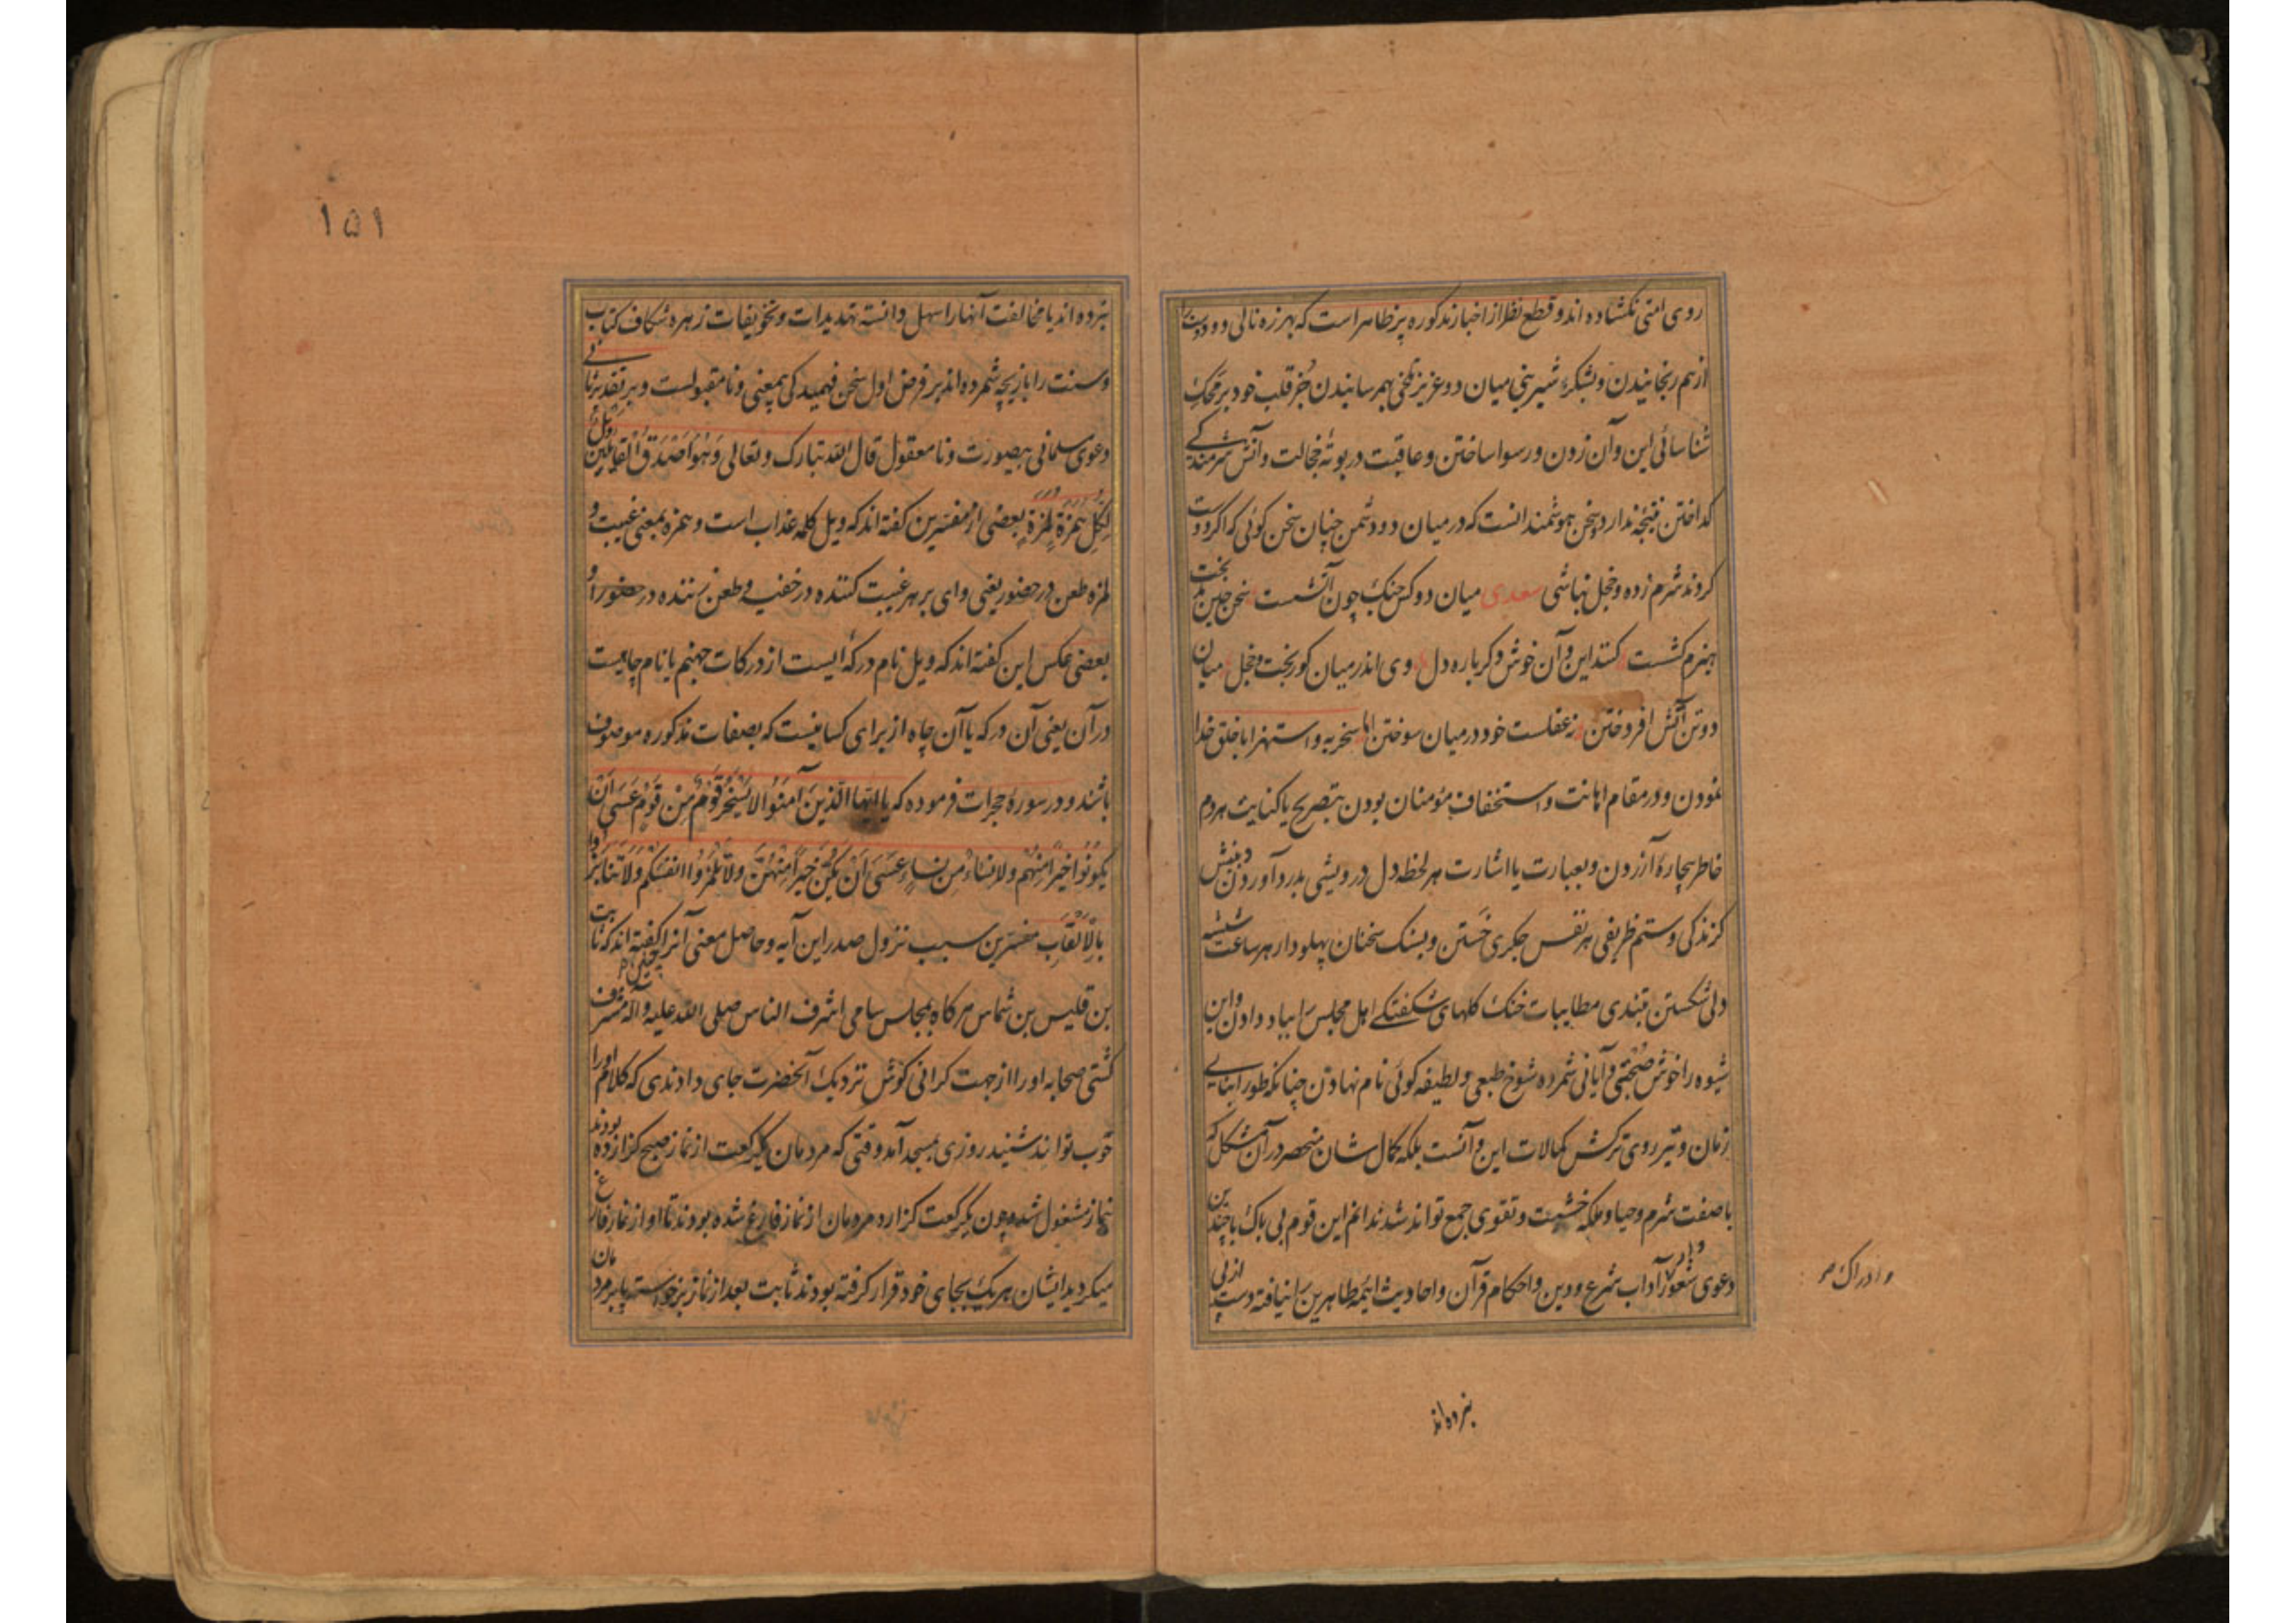 روی امتی نکشاده اند و قطع نظر از اخبار مذکوره پر ظاهر است که بهرزه نالی دو دوست را
از هم رنجانیدن و بشکرء شیرینی میان دو عزیز تلخی بهم رسانیدن جز قلب خود بر محک
شناسائی این و آن زدن و رسوا ساختن و عاقبت در بوته خجالت و آتش شرمندکے
کداختن نتیجه ندارد سخن هوشمندانست که در میان دو دشمن چنان سخن کوئی که اکر دوست
کردند شرم زده و خجل نباشی سعدی میان دو کس جنک چون آتشست سخن چین بدبخت
هیزم کشست کنند این و آن خوش دکر باره دل وی اندر میان کوربخت و خجل میان
دو تن آتش افروختن نه عقلست خود در میان سوختن اما سخریه و استهزا با خلق خدا
نمودن و در مقام اهانت و استخفاف مؤمنان بودن بتصریح یا کنایت هر دم
خاطر بیچارهٔ آزردن و بعبارت یا اشارت هر لحظه دل درویشی بدرد آوردن و بنیش
کزندکی و ستم ظریفی هر نفس جکری خستن و بسنک سخنان پهلودار هر ساعت شیشه
دلی شکستن بتندی مطایبات خنک کلهای شکفتکے اهل مجلس را بباد دادن و این
شیوه را خوش صحبتی و آیانی شمرده شوخ طبعی و لطیفه کوئی نام نهادن چنانکه طور ابنایے
زمان و تیر روی ترکش کمالات این و آنست بلکه کمال شان منحصر در آن مشکل که
با صفت شرم و حیا و ملکه خشیت و تقوی جمع تواند شد ندانم این قوم بی باک با چندین
دعوی شعور آداب شرع و دین و احکام قرآن و احادیث ائمه طاهرین را نیافته دست از پی
و ادراک صح
نبرده اند
۱۵۱
نبرده اند یا مخالفت آنها را سهل دانسته تهدیدات و تخویفات زهره شکاف کتاب
و سنت را بازیچه شمرده اند بر فرض اول سخن فهمیدکی بیمعنی و نامقبولست و بر تقدیر ثانے
دعوی مسلمانی بیصورت و نامعقول قال الله تبارک و تعالی وَهُوَ اَصْدَقُ الْقَائِلِینَ وَیْلٌ
لِکُلِّ هُمَزَةٍ لُمَزَةٍ بعضی از مفسرین کفته اند که ویل کلمه عذاب است و همزه بمعنی غیبت و
لمزه طعن در حضور یعنی وای بر هر غیبت کننده در خفیه و طعن زننده در حضور و
بعضی عکس این کفته اند که ویل نام درکهٔ ایست از درکات جهنم یا نام چاهیست
در آن یعنی آن درکه یا آن چاه از برای کسانیست که بصفات مذکوره موصوف
باشند و در سورهٔ حجرات فرموده که یا ایها الَّذِینَ آمَنُوا لا یَسْخَرْ قَوْمٌ مِنْ قَوْمٍ عَسَی اَنْ
یَکُونُوا خَیْراً مِنْهُمْ وَلا نِسَاءٌ مِنْ نِسَاءٍ عَسَی اَنْ یَکُنَّ خَیْراً مِنْهُنَّ وَلا تَلْمِزُوا اَنْفُسَکُمْ وَلا تَنَابَزُوا
بِالْاَلْقَابِ مفسرین سبب نزول صدر این آیه و حاصل معنی آنرا کفته اند که ثابت
بن قلیس بن شماس هر کاه بمجلس سامی اشرف الناس صلی الله علیه و آله مشرف
کشتی صحابه او را از جهت کرانی کوش نزدیک آنحضرت جای دادندی که کلام او را
خوب تواند شنید روزی بمسجد آمد وقتی که مردمان یکرکعت از نماز صبح کزارده بودند
بنماز مشغول شد و چون یکرکعت کزارد مردمان از نماز فارغ شده بودند تا او از نماز فارغ
میکردید ایشان هر یک بجای خود قرار کرفته بودند ثابت بعد از نماز برخواسته پا بر مردمان